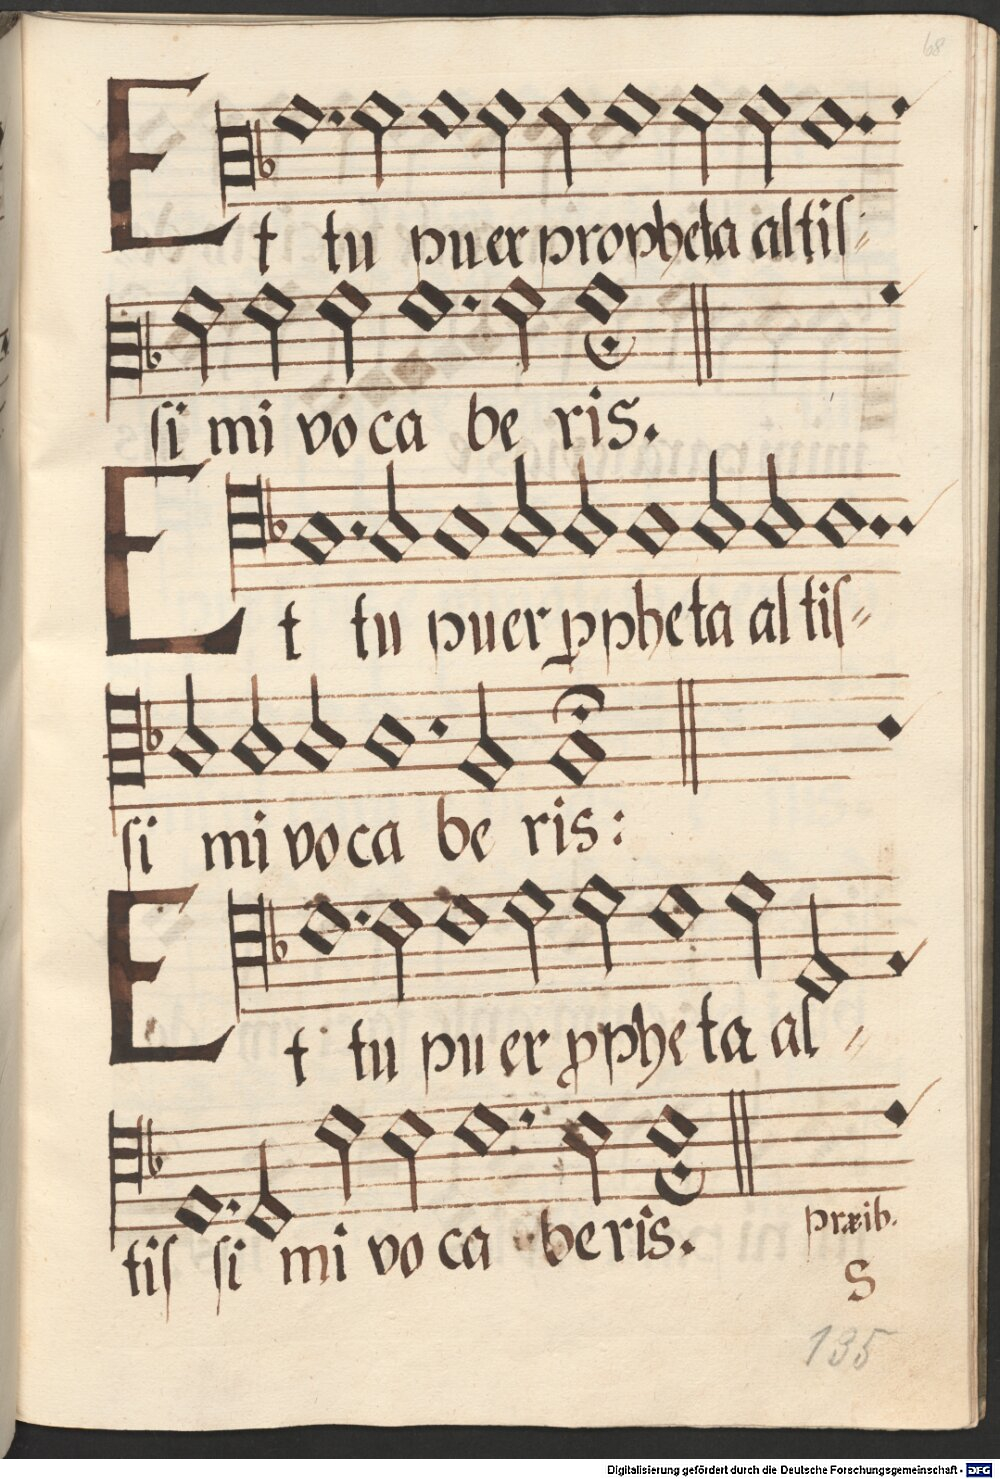 68
Et tu puer propheta altis⸗
si mi vo ca be ris.
Et tu puer ꝓpheta al tis⸗
si mi vo ca be ris:
Et tu pu er ꝓphe ta al⸗
tis si mi vo ca be ris.
præib.
S
135
Digitalisierung gefördert durch die Deutsche Forschungsgemeinschaft - DFG